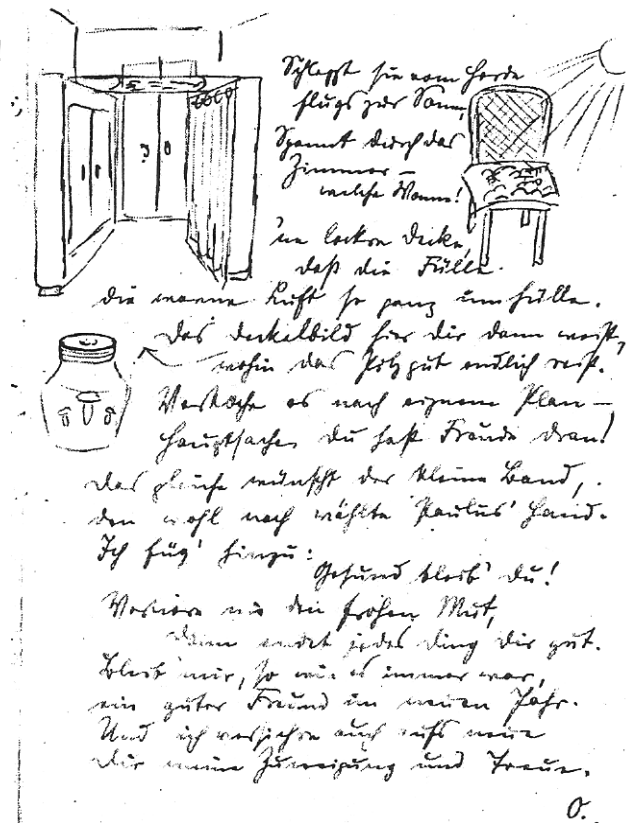 Schleppt sie vom Herde
flugs zur Sonne,
Spannt durch das
Zimmer –
welche Wonne!
'ne lockre Decke,
daß die Fülle
die warme Luft so ganz umhülle.
Das Deckelbild hier dir dann weist,
wohin das Pilzgut endlich reist.
Verkoche es nach eignem Plan –
Hauptsache, du hast Freude dran!
Das gleiche wünscht der kleine Band,
den wohl noch wählte Paulus' Hand.
Ich füg' hinzu:
Gesund bleib' du!
Verliere nie den frohen Mut,
dann endet jedes Ding dir gut.
Bleib mir, so wie es immer war,
ein guter Freund im neuen Jahr.
Und ich versichre auch aufs neue
Dir meine Zuneigung und Treue.
O.